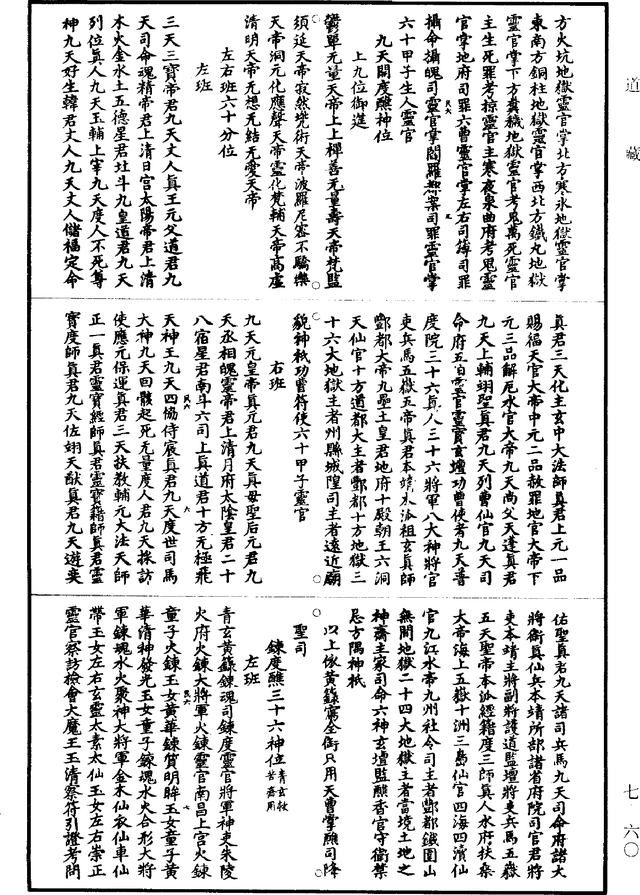 道藏
方火坑地獄靈官掌北方寒氷地獄靈官掌
東南方銅柱地獄靈官掌西北方鐵丸地獄
靈官掌下方糞穢地獄靈官考鬼萬死靈官
主生死罪考掠靈官主寒夜泉曲府考鬼靈
官掌地府司罪六曹靈官掌左右司簿司罪
攝命攝魄司靈官掌閻羅都案司罪靈官掌
六十甲子生人靈官
九天開度醮神位
上九位御遥
鬱單无量天帝上上禪善无量壽天帝梵監
須延天帝寂然兠術天帝波羅尼蜜不驕樂
天帝洞元化應聲天帝靈化梵輔天帝高虛
清明天帝无想无結无愛天帝
左右班六十分位
左班
三天三寶帝君九天丈人眞王元父道君九
天司命魂精帝君上清日宮太陽帝君上清
木火金水土五德星君北斗九皇道君九天
列位真人九天玉輔上宰九天度人不死尊
神九天好生韓君丈人九天丈人儲福定命
真君三天化主玄中大法師真君上元一品
賜福天官大帝中元二品赦罪地官大帝下
元三品解厄水官大帝九天尚父天蓬真君
九天上輔翊聖真君九天列曹仙官九天司
命府五伯靈官靈寶玄壇功曹使者九天普
度院三十六真人三十六將軍八大神將官
吏兵馬五嶽五帝真君本靖水派祖玄真師
酆都大帝九壘土皇君地府十殿朝王六洞
天仙官十方道都大主者酆都十方地獄三
十六大地獄主者州縣城隍司主者遠近廟
貌神祇功曹符使六十甲子靈官
右班
九天元皇帝真元君九天真母聖后元君九
天丞相魄靈帝君上清月府太陰皇君二十
八宿星君南斗六司上真道君十方无極飛
天神王九天四恊侍宸真君九天度世司馬
大神九天回骸起死无量度人君九天採訪
使應元保運真君三天扶教輔元大法天師
正一真君靈寶經師真君靈寶籍師真君靈
寶度師真君九天佐翊天猷真君九天遊奕
佑聖真君九天諸司兵馬九天司命府諸大
將衙真仙兵本靖所部諸省府院司官君將
吏本靖主將副將護道監壇將吏兵馬五嶽
五天聖帝本派經籍度三師真人水府扶桑
大帝海上五嶽十洲三島仙官四海四瀆仙
官九江水帝九州社令司主者酆都鐵圍山
無間地獄二十四大地獄主者當境土地之
神齋主家司命六神玄壇監醮香官守衙禁
忌方隅神祇
以上係黃籙寫全衙只用天曹掌醮司降
聖司
鍊度醮三十六神位青玄救苦齋用
左班
青玄黃籙鍊魂司鍊度靈官將軍神吏朱陵
火府火鍊大將軍火鍊靈官南昌上宮火鍊
童子火鍊玉女黃華鍊質明眸玉女童子黃
華清神發光玉女童子鍊魂水火合形大將
軍鍊塊水火聚神大將軍金木仙衣仙車仙
帶玉女左右玄靈太素太仙玉女左右崇正
靈官察訪檢會大魔王玉清察符引證考問
七六〇